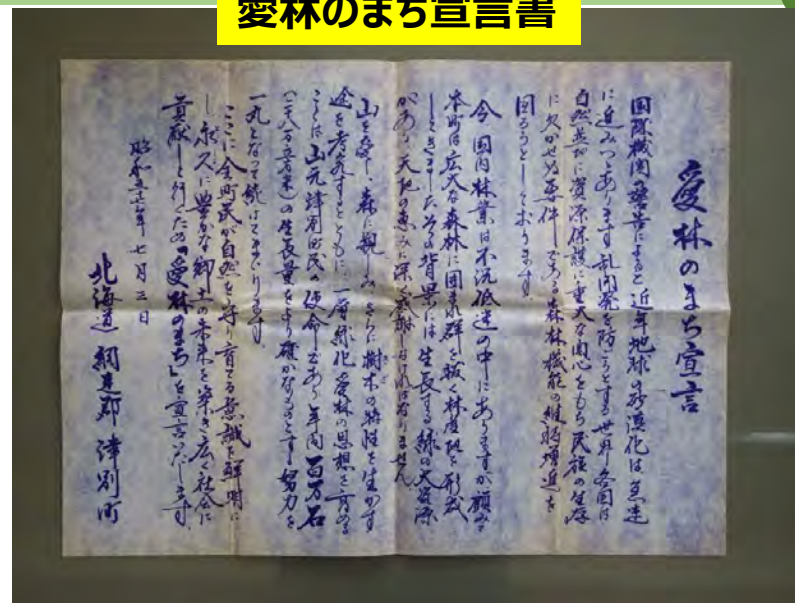 愛林のまち宣言書
愛林のまち宣言
国際機関の警告によると 近年地球の砂漠化は急速
に近みつつあります 乱開発を防ごうとする世界各国は
自然並びに資源保護に重大な関心をもち民族の生存
に欠かせぬ要件である森林機能の維持増進を
図ろうとしております
今 国内林業は不況低迷の中にありますが顧みて
本町は広大な森林に囲まれ群を抜く林産地を形成
してきましたその背景には生長する緑の大資源
があり天地の恵みに深く感謝しなければなりません
山を愛し、森に親しみ、さらに樹木の特性を生かす
途を考究するとともに、一層緑化愛林の思想を高める
ことは 山元津別町民の使命であり年間百万石
(二十八万立方米)の生長量をより確かなものとする努力を
一丸となって続けてまいります
ここに全町民が自然を守り育てる意識を鮮明に
し永久に豊かな郷土の未来を築き広く社会に
貢献して行くため「愛林のまち」を宣言いたします
昭和 年 七月三日
北海道 網走郡 津別町